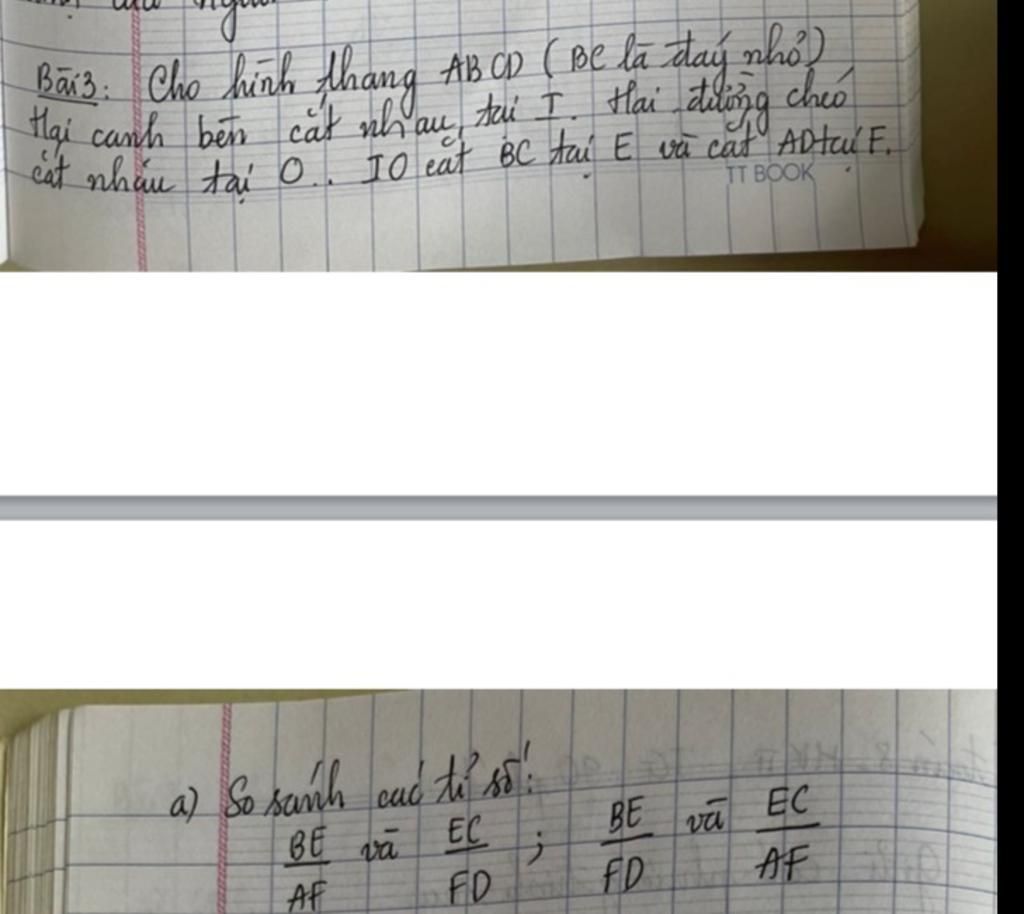 Bài 3: Cho hình thang ABCD (BC là đáy nhỏ)
Hai cạnh bên cắt nhau tại I. Hai đường chéo
cắt nhau tại O.. IO cắt BC tại E và cắt AD tại F.
TT BOOK
a) So sánh các tỉ số:
BE/AF và EC/FD ; BE/FD và EC/AF